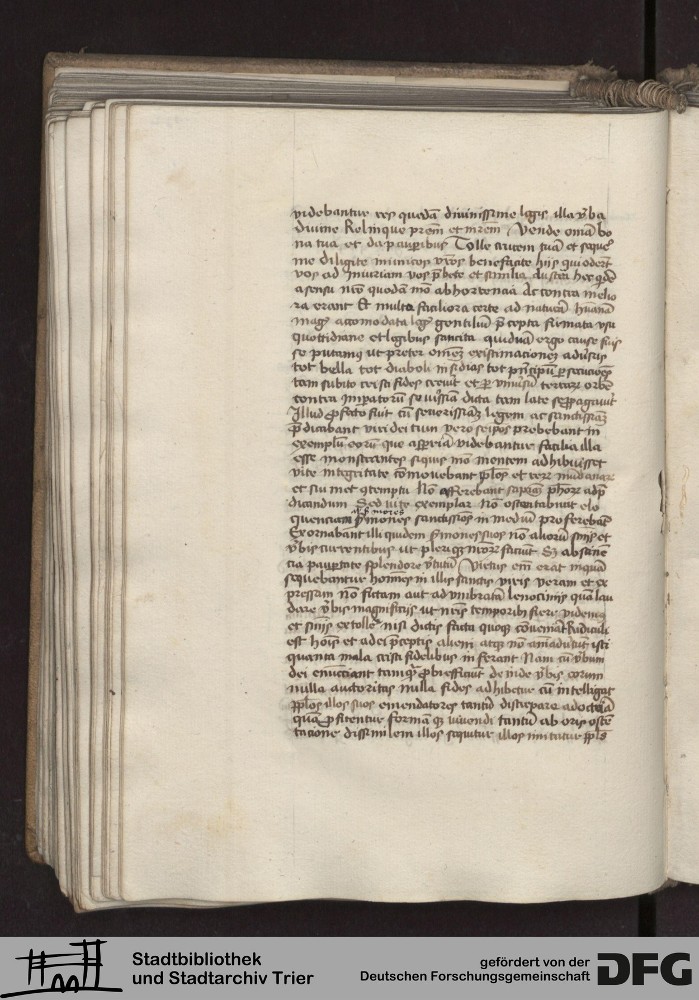 videbantur res quedã divinissime legis illa v̓ba
divine Relinque prēm et mrēm Vende omã bo
na tua et da paupibus Tolle crucem tuã et seque
me diligite inimicos vr̄os benefacite hijs qui odert̄
vos ad iniuriam vos p̄bete et similia
a sensu nr̄o quodã mō abhorrencia Ac contra melio
ra erant Et multa faciliora certe ad naturã humanã
magꝭ accomodata legꝭ gentiliũ p̄cepta firmata usu
quottidiano et legibus sancita quidnã ergo cause fuisse
se putamꝰ ut preter om̄eꝫ existimacioneꝫ adv̓sus
tot bella tot diaboli insidias tot pn̄cipũ persecucoēs
tam subito cristi fides crevit et ꝑ vniv̓sũ terraꝝ orbē
contra impatorũ sevissĩa dicta tam late se ꝓpagavit
Illud ꝓfecto fuit cũ severissiaꝫ legem ac sanctissiaꝫ
p̄dicabant viri dei tum vero seipos prebebant in
exemplũ eorũ que asperia videbantur facilia illa
esse monstrantes siquis mō mentem adhibuisset
vite integritate cōmovebant pplos et vere mũdanare
et sui met ꝯtemptu Nō afferebant
dicandum Sed vite exemplar Nō ostentabant elo
quenciam s̓mones sanctissios in mediũ proferebãt
Exornabant illi quidem s̓mones suos nō alioꝝ suīs et
v̓bis currentibus ut pleriqꝫ nr̄oꝝ faciunt Sꝫ abstinē
cia paupertate splendore v̓tutũ Virtus em̄ erat inquã
sequebantur homīes in illis sanctis viris veram et ex
pressam nō fictam aut adumbratã lenocinijs quã lau
dare v̓bis magnificijs ut nr̄is temporibꝫ fieri videmꝰ
et suīs extolle nisi dictis facta quoqꝫ cōveniãt Ridiculũ
est hoīs et a dei p̄ceptis alieni atqꝫ nō
quanta mala cristi fidelibus inferant Nam cũ v̓bum
dei enũcciant tamqꝫ ꝓbi efficiũt deinde v̓bis eorum
nulla auctoritas nulla fides adhibetur cũ intelligat
pplos illos suos emendatores tantũ discrepare a doctrĩa
quã ꝓfitentur formã qꝫ vivendi tantũ ab oris ostē
tacione dissimilem illos sequitur illos imitatur ppls
Stadtbibliothek
und Stadtarchiv Trier
gefördert von der
Deutschen Forschungsgemeinschaft
DFG